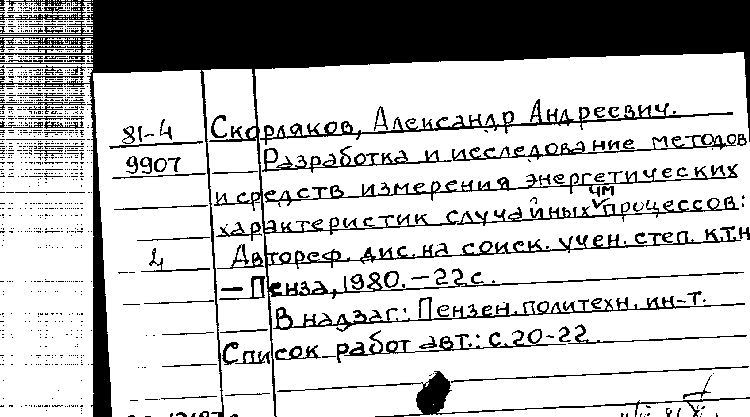 81-4 Скорляков, Александр Андреевич.
9907 Разработка и исследование методов
и средств измерения энергетических
характеристик случайных чм процессов:
4 Автореф. дис. на соиск. учен. степ. к.т.н
— Пенза, 1980. — 22 с.
В надзаг.: Пензен. политехн. ин-т.
Список работ авт.: с. 20-22.